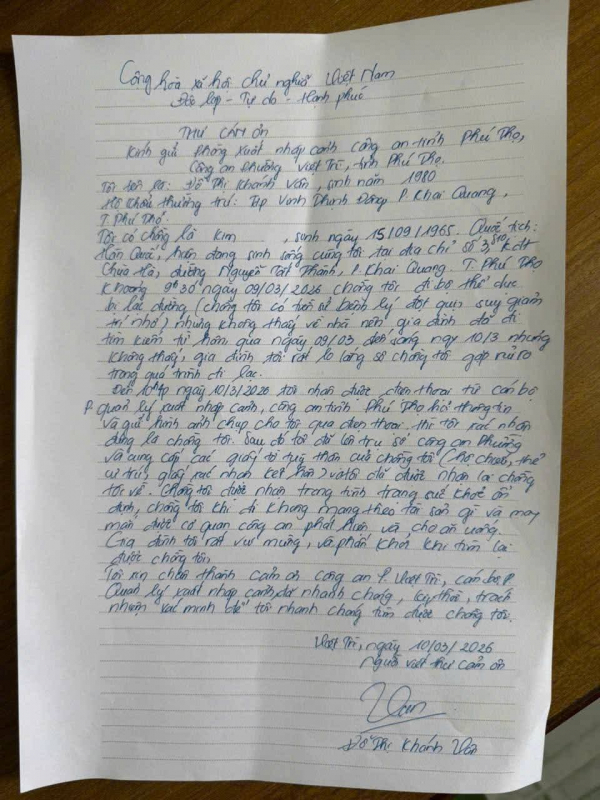 Cộng hòa xã hội chủ nghĩa Việt Nam
Độc lập - Tự do - Hạnh phúc
THƯ CẢM ƠN
Kính gửi phòng xuất nhập cảnh công an tỉnh Phú Thọ,
Công an phường Việt Trì, tỉnh Phú Thọ.
Tôi tên là: Đỗ Thị Khánh Vân, sinh năm 1980
Hộ khẩu thường trú: Vĩnh Thịnh Đông, P. Khai Quang,
T. Phú Thọ.
Tôi có chồng là Kim , sinh ngày 15/09/1965. Quốc tịch:
Hàn Quốc, hiện đang sinh sống cùng tôi tại địa chỉ số 3, KĐT
Chùa Hà, đường Nguyễn Tất Thành, P. Khai Quang. T. Phú Thọ
Khoảng 9h30 ngày 09/03/2026 chồng tôi đi bộ thể dục
bị lạc đường (chồng tôi có tiền sử bệnh lý đột quỵ suy giảm
trí nhớ) nhưng không thấy về nhà nên gia đình đã đi
tìm kiếm từ hôm qua ngày 09/03 đến sáng ngày 10/3 nhưng
không thấy, gia đình tôi rất lo lắng sợ chồng tôi gặp rủi ro
trong quá trình đi lạc.
Đến ngày 10/3/2026 tôi nhận được điện thoại từ cán bộ
P. quản lý xuất nhập cảnh, công an tỉnh Phú Thọ hỏi thông tin
và gửi hình ảnh chụp cho tôi qua điện thoại thì tôi xác nhận
đúng là chồng tôi. Sau đó tôi đã tới trụ sở công an phường
và cung cấp các giấy tờ tuỳ thân của chồng tôi (Hộ chiếu, thẻ
cư trú, giấy xác nhận kết hôn) và tôi đã được nhận lại chồng
tôi về. Chồng tôi được nhận trong tình trạng sức khoẻ ổn
định, chồng tôi khi đi không mang theo tài sản gì và may
mắn được cơ quan công an phát hiện và cho ăn uống.
Gia đình tôi rất vui mừng, và phấn khởi khi tìm lại
được chồng tôi.
Tôi xin chân thành cảm ơn công an P. Việt Trì, cán bộ P.
Quản lý xuất nhập cảnh đã nhanh chóng, kịp thời, trách
nhiệm xác minh để tôi nhanh chóng tìm được chồng tôi.
Việt Trì, ngày 10/03/2026
Người viết thư cảm ơn
Vân
Đỗ Thị Khánh Vân